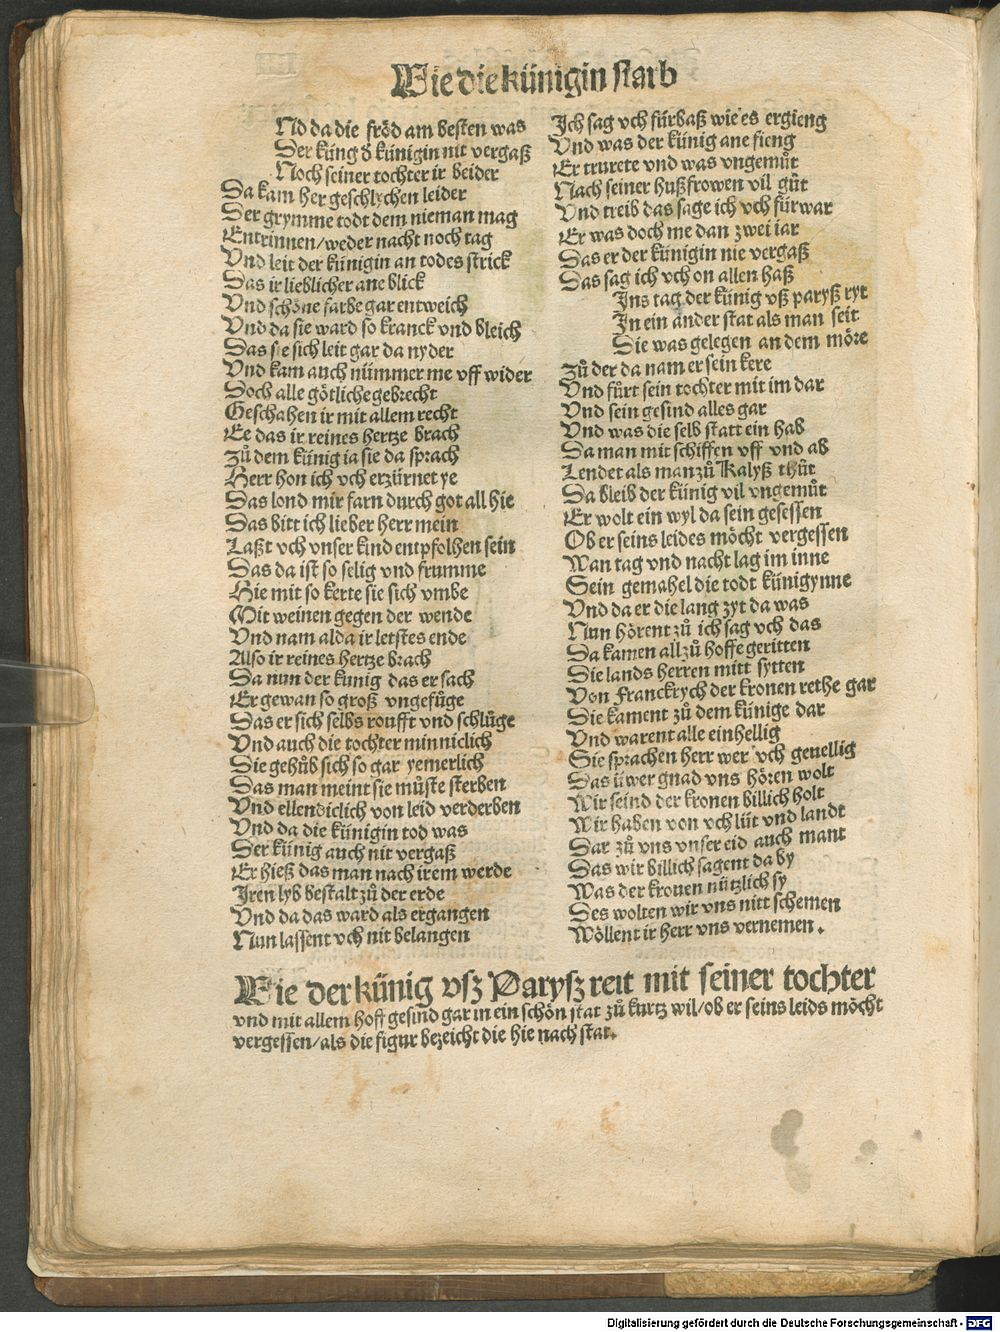 Wie die künigin starb
Nd da die fröd am besten was
Der küng d künigin nit vergaß
Noch seiner tochter ir beider
Da kam her geschlychen leider
Der grymme todt dem nieman mag
Entrinnen/weder nacht noch tag
Vnd leit der künigin an todes strick
Das ir lieblicher ane blick
Vnd schöne farbe gar entweich
Vnd da sie ward so kranck vnd bleich
Das sie sich leit gar da nyder
Vnd kam auch nümmer me vff wider
Doch alle götliche gebrecht
Geschahen ir mit allem recht
Ee das ir reines hertze brach
Zů dem künig ia sie da sprach
Herr hon ich vch erzürnet ye
Das lond mir farn durch got all hie
Das bitt ich lieber herr mein
Laßt vch vnser kind entpfolhen sein
Das da ist so selig vnd frumme
Hie mit so kerte sie sich vmbe
Mit weinen gegen der wende
Vnd nam alda ir letstes ende
Also ir reines hertze brach
Da nun der kunig das er sach
Er gewan so groß vngefůge
Das er sich selbs roufft vnd schlůge
Vnd auch die tochter minniclich
Die gehůb sich so gar yemerlich
Das man meint sie můste sterben
Vnd ellendiclich von leid verderben
Vnd da die künigin tod was
Der künig auch nit vergaß
Er hieß das man nach irem werde
Iren lyb bestalt zů der erde
Vnd da das ward als ergangen
Nun lassent vch nit belangen
Ich sag vch fürbaß wie es ergieng
Vnd was der künig ane fieng
Er trurete vnd was vngemůt
Nach seiner hußfrowen vil gůt
Vnd treib das sage ich vch fürwar
Er was doch me dan zwei iar
Das er der künigin nie vergaß
Das sag ich vch on allen haß
Ins tag der künig vß paryß ryt
In ein ander stat als man seit
Die was gelegen an dem möre
Zů der da nam er sein kere
Vnd fürt sein tochter mit im dar
Vnd sein gesind alles gar
Vnd was die selb statt ein hab
Da man mit schiffen vff vnd ab
Lendet als man zů Kalyß thůt
Da bleib der künig vil vngemůt
Er wolt ein wyl da sein gesessen
Ob er seins leides möcht vergessen
Wan tag vnd nacht lag im inne
Sein gemahel die todt künigynne
Vnd da er die lang zyt da was
Nun hörent zů ich sag vch das
Da kamen all zů hoffe geritten
Die lands herren mitt sytten
Von Franckrych der kronen rethe gar
Die kament zů dem künige dar
Vnd warent alle einhellig
Sie sprachen herr wer vch geuellig
Das üwer gnad vns hören wolt
Wir seind der kronen billich holt
Wir haben von vch lüt vnd landt
Dar zů vns vnser eid auch mant
Das wir billich sagent da by
Was der kronen nützlich sy
Des wolten wir vns nitt schemen
Wöllent ir herr vns vernemen.
Wie der künig vsz Parysz reit mit seiner tochter
vnd mit allem hoff gesind gar in ein schön stat zů kurtz wil/ob er seins leids möcht
vergessen/als die figur bezeicht die hie nach stat.
Digitalisierung gefördert durch die Deutsche Forschungsgemeinschaft - DFG